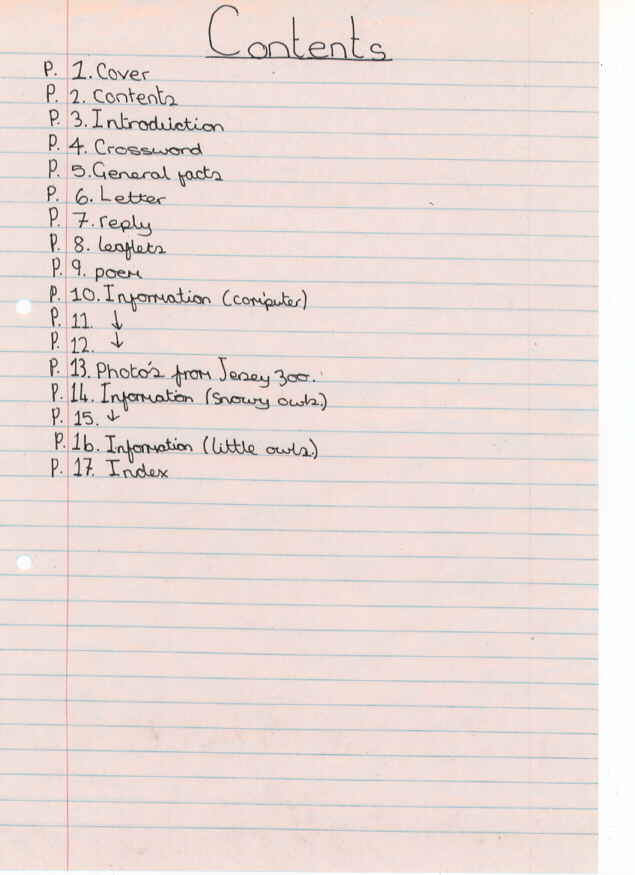 Contents
P. 1. Cover
P. 2. Contents
P. 3. Introduction
P. 4. Crossword
P. 5. General facts
P. 6. Letter
P. 7. reply
P. 8. leaflets
P. 9. poem
P. 10. Information (computer)
P. 11. ↓
P. 12. ↓
P. 13. Photo's from Jersey zoo.
P. 14. Information (snowy owls)
P. 15. ↓
P. 16. Information (little owls)
P. 17. Index